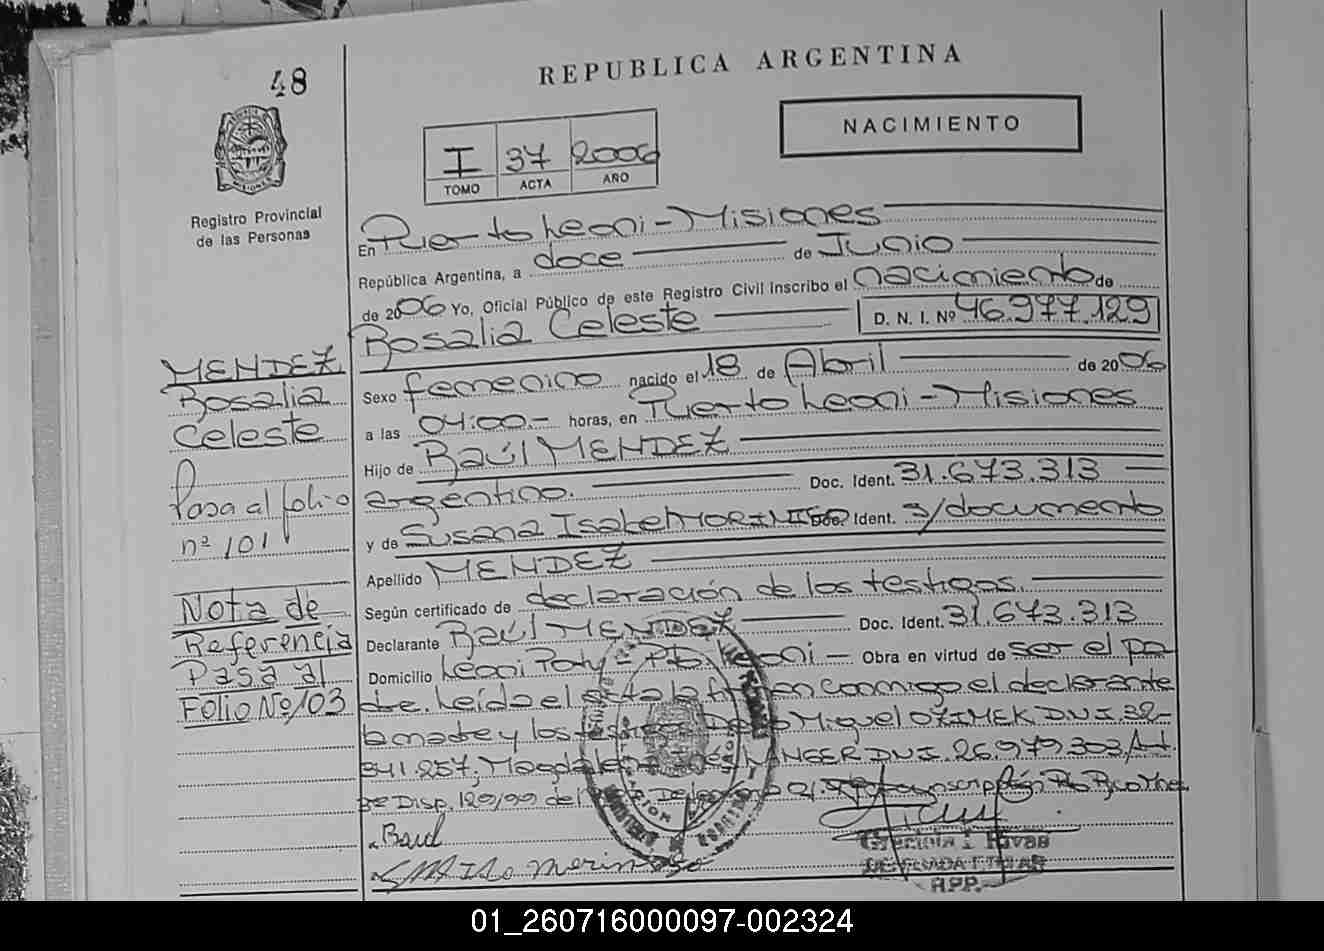 48
REPUBLICA ARGENTINA
NACIMIENTO
I 37 2006
TOMO ACTA AÑO
Registro Provincial
de las Personas
En Puerto Leoni - Misiones
República Argentina, a doce de Junio
de 2006 Yo, Oficial Público de este Registro Civil Inscribo el nacimiento de
Rosalia Celeste D. N. I. Nº 46.977.129
MENDEZ
Rosalia
Celeste
Pasa al folio
nº 101
Nota de
Referencia
Pasa al
Folio Nº 103
Sexo femenino nacido el 18 de Abril de 2006
a las 04:00.- horas, en Puerto Leoni - Misiones
Hijo de Raúl MENDEZ
argentino. Doc. Ident. 31.673.313
y de Susana Isabel MORINIGO Doc. Ident. s/documento
Apellido MENDEZ
Según certificado de declaración de los testigos.
Declarante Raúl MENDEZ Doc. Ident. 31.673.313
Domicilio Leoni Poty - Pto. Leoni - Obra en virtud de ser el pa
dre. Leída el acta la firman conmigo el declarante
la madre y los Miguel OZIMEK D.N.I. 32-
941.257, Magdalena D.N.I. 26.979.303 Art.
Disp. 120/99 del
Raul
Graciela I Rivas
DELEGADA TITULAR
R.P.P.
01_260716000097-002324